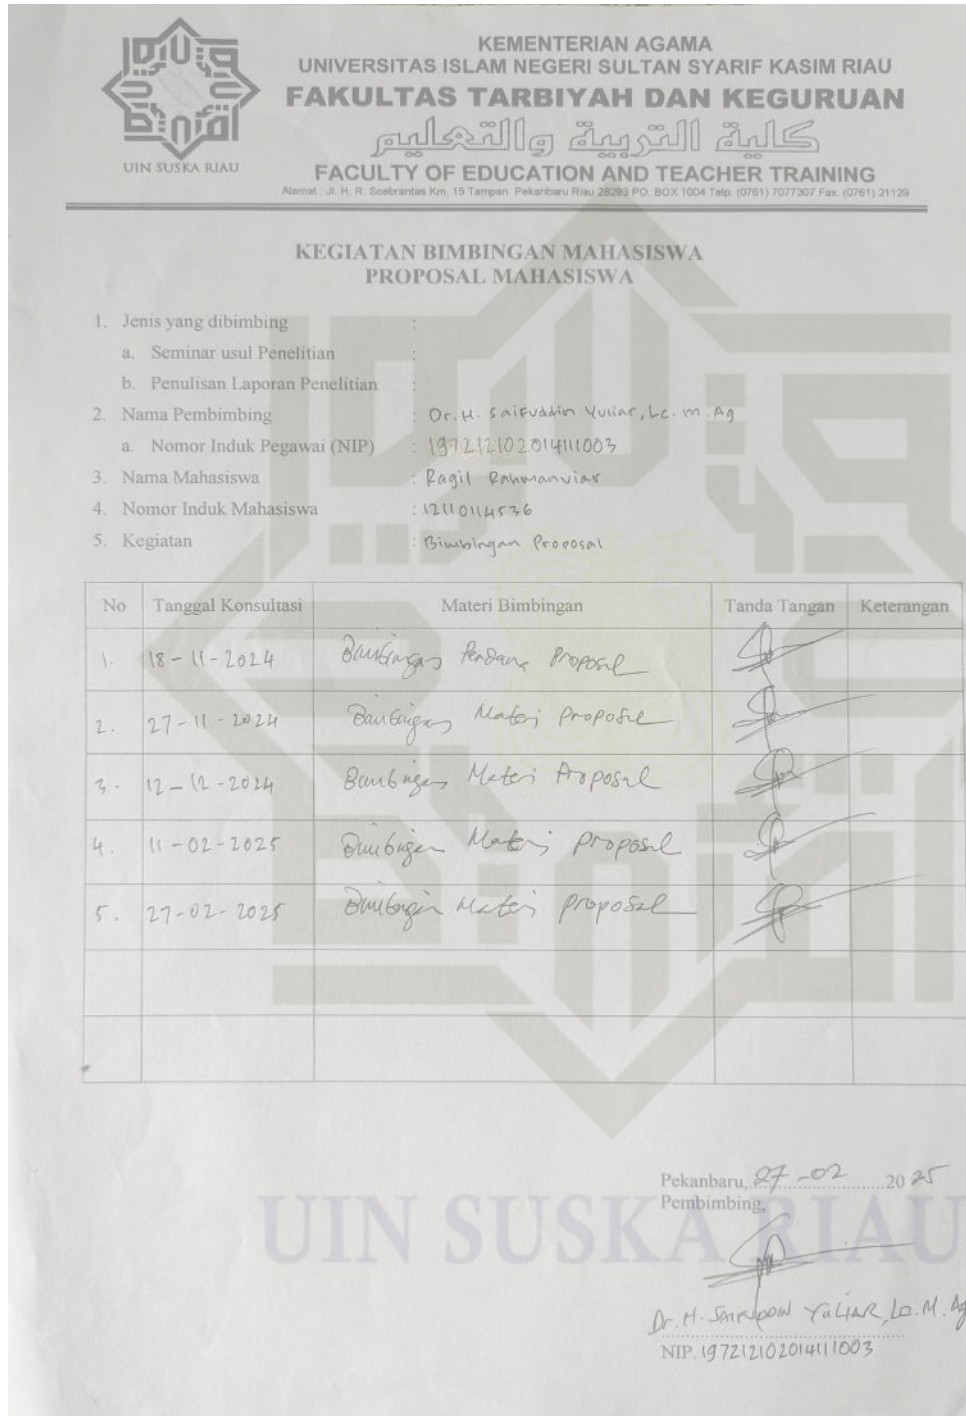 KEMENTERIAN AGAMA
UNIVERSITAS ISLAM NEGERI SULTAN SYARIF KASIM RIAU
FAKULTAS TARBIYAH DAN KEGURUAN
كلية التربية والتعليم
UIN SUSKA RIAU
FACULTY OF EDUCATION AND TEACHER TRAINING
Alamat : Jl. H. R. Soebrantas Km. 15 Tampan Pekanbaru Riau 28293 PO. BOX 1004 Telp. (0761) 7077307 Fax. (0761) 21129
KEGIATAN BIMBINGAN MAHASISWA
PROPOSAL MAHASISWA
1. Jenis yang dibimbing :
a. Seminar usul Penelitian :
b. Penulisan Laporan Penelitian :
2. Nama Pembimbing : Dr. H. Saifuddin Yuliar, Lc. M. Ag
a. Nomor Induk Pegawai (NIP) : 197212102014111003
3. Nama Mahasiswa : Ragil Rahmanviar
4. Nomor Induk Mahasiswa : 12110114536
5. Kegiatan : Bimbingan Proposal
No Tanggal Konsultasi Materi Bimbingan Tanda Tangan Keterangan
1. 18-11-2024 Bimbingan Perdana Proposal
2. 27-11-2024 Bimbingan Materi Proposal
3. 12-12-2024 Bimbingan Materi Proposal
4. 11-02-2025 Bimbingan Materi proposal
5. 27-02-2025 Bimbingan Materi proposal
Pekanbaru, 27-02 2025
Pembimbing,
UIN SUSKA RIAU
Dr. H. Saifuddin Yuliar, Lc. M. Ag
NIP. 197212102014111003